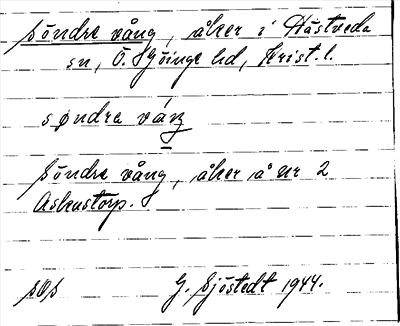 Söndre vång, åker i Hästveda
sn, Ö. Göinge hd, Krist. l.
söndra váŋ
Söndre vång, åker å nr 2
Askustorp.
G. Sjöstedt 1944.